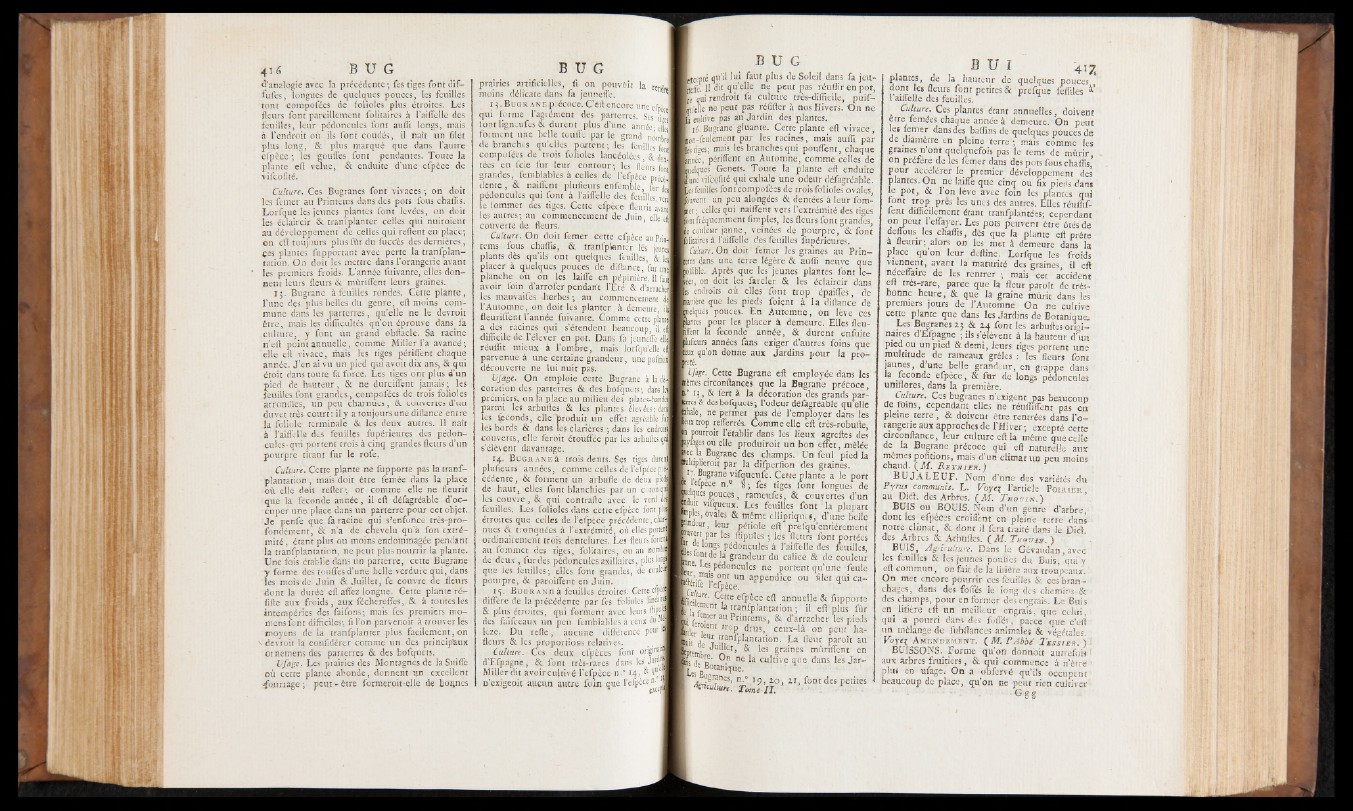 416 BUG
d'analogie avec la précédente; ses tiges sont dif-
fuses, longues de quelques pouces, les feuilles
sont composées de folioles plus étroites. Les
fleurs sont pareillement solitaires à l'aisselle des
feuilles, leur pédoncules sont aussi longs, mais
à l'endroit où ils sont coudés, il naît un filet
plus long, & plus marqué que dans l'autre
espèce; les gousses sont pendantes. Toute la
plante est velue, & enduite d'une espèce de
viscosité.
Culture. Ces Bugranes sont vivaces; on doit
les semer au Printems dans des pots sous chassis.
Lorsque les jeunes plantes sont levées, on doit
les éclaircir & transplanter celles qui nuiroient
au développement de celles qui restent en place;
on est toujours plus sûr du succès des dernières,
ces plantes supportant avec perte la transplan-
tation. On doit les mettre dans l'orangerie avant
les premiers froids. L'année suivante, elles don-
nent leurs fleurs & mûrissent leurs graines.
13. Bugrane à feuilles rondes. Cette plante,
l'une des plus belles du genre, est moins com-
mune dans les parterres, qu'elle ne le devroit
être, mais les difficultés qu'on éprouve dans sa
culture, y sont un grand obstacle. Sa racine
n'est point annuelle, comme Miller l'a avancé;
elle est vivace, mais les tiges périssent chaque
année. J'en ai vu un pied qui avoit dix ans, & qui
étoit dans toute sa force. Les tiges ont plus d'un
pied de hauteur, & ne durcissent jamais; les
feuilles sont grandes, composées de trois folioles
arrondies, un peu charnues, & couvertes d'un
duvet très-court: il y a toujours une distance entre
la foliole terminale & les deux autres. Il naît
à l'aisselle des feuilles supérieures des pédon-
cules qui portent trois à cinq grandes fleurs d'un
pourpre tirant sur le rose.
Culture. Cette plante ne supporte pas la trans-
plantation, mais doit être semée dans la place
où elle doit rester; or comme elle ne fleurit
que la seconde année, il est désagréable d'oc-
cuper une place dans un parterre pour cet objet.
Je pense que sa racine qui s'enfonce très-pro-
fondément, & n'a de chevelu qu'à son extré-
mité, étant plus ou moins endommagée pendant
la transplantation, ne peut plus nourrir la plante.
Une fois établie dans un parterre, cette Bugrane
y forme des touffes d'une belle verdure qui, dans
les mois de Juin & Juillet, se couvre de fleurs
dont la durée est assez longue. Cette plante ré-
siste aux froids, aux sécheresses, & à toutes les
intempéries des saisons; mais ses premiers mo-
mens sont difficiles; si l'on parvenoit à trouver les
moyens de la transplanter plus facilement, on
devroit la considérer comme un des principaux
ornemens des parterres & des bosquets.
Usage. Les prairies des Montagnes de la Suisse
où cette plante abonde, donnent un excellent
fourrage; peut-être formeroit-elle de bonnes
BUG
prairies artificielles, si on pouvoit la rendre
moins délicate dans sa jeunesse.
13. BUGRANE précoce. C'est encore une espèce
qui forme l'agrément des parterres. Ses tiges
sont ligneuses & durent plus d'une année; elles
forment une belle touffe par le grand nombre
de branches qu'elles portent; les feuilles sont
composées de trois folioles lancéolées, & den-
tées en scie sur leur contour; les fleurs sont
grandes, semblables à celles de l'espèce précé-
dente, & naissent plusieurs ensemble, sur des
pédoncules qui sont à l'aisselle des feuilles, vers
le sommet des tiges. Cette espèce fleurit avant
les autres; au commencement de Juin, elle est
couverte de fleurs.
Culture. On doit semer cette espèce au Prin-
tems sous chassis, & transplanter les jeunes
plants dès qu'ils ont quelques feuilles, & les
placer à quelques pouces de distance, sur une
planche où on les laisse en pépinière. Il faut
avoir soin d'arroser pendant l'Été & d'arracher
les mauvaises herbes; au commencement de
l'Automne, on doit les planter à demeure, ils
fleurissent l'année suivante. Comme cette plante
a des racines qui s'étendent beaucoup, il est
difficile de l'élever en pot. Dans sa jeunesse elle
réussit mieux à l'ombre, mais lorsqu'elle est
parvenue à une certaine grandeur, une position
découverte ne lui nuit pas.
Usage. On emploie cette Bugrane à la dé-
coration des parterres & des bosquets; dans les
premiers, on la place au milieu des plates-bandes
parmi les arbustes & les plantes élevées; dans
les seconds, elle produit un effet agréable sur
les bords & dans les clarières; dans les endroits
couverts, elle seroit étouffée par les arbustes qui
s'élevent davantage.
14. BUGRANE à trois dents. Ses tiges durent
plusieurs années, comme celles de l'espèce pré-
cédente, & forment un arbuste de deux pieds
de haut, elles sont blanchies par un coton qui
les couvre, & qui contraste avec le verd des
feuilles. Les folioles dans cette espèce sont plus
étroites que celles de l'espèce précédente, char-
nues & tronquées à l'extrémité, où elles portent
ordinairement trois dentelures. Les fleurs sortent
au sommet des tiges, solitaires, ou au nombre
de deux, sur des pédoncules axillaires, plus longs
que les feuilles; elles sont grandes, de couleur
pourpre, & paroissent en Juin.
15. BUGRANE à feuilles étroites. Cette espèce
diffère de la précédente par ses folioles linéaires
& plus étroites, qui forment avec leurs stipules
des faisceaux un peu semblables à ceux du Mé-
lèze. Du reste, aucune différence pour les
fleurs & les proportions relatives.
Culture. Ces deux espèces sont originaires
d'Espagne, & sont très-rares dans les Jardins.
Miller dit avoir cultivé l'espèce n.° 14, & qu'elle
n'exigeoit aucun autre soin que l'espèce n.° 13,
excepté
BUG
excepté qu'il lui faut plus de Soleil dans sa jeu-
nesse. Il dit qu'elle ne peut pas réussir en pot,
ce qui rendroit sa culture très-difficile, puis-
qu'elle ne peut pas résister à nos Hivers. On ne
la cultive pas au Jardin des plantes.
16. Bugrane gluante. Cette plante est vivace,
non-seulement par les racines, mais aussi par
les tiges; mais les branches qui poussent, chaque
année, périssent en Automne, comme celles de
quelques Genets. Toute la plante est enduite
d'une viscosité qui exhale une odeur désagréable.
Les feuilles sont composées de trois folioles ovales,
souvent un peu alongées & dentées à leur som-
met: celles qui naissent vers l'extrémité des tiges
sont fréquemment simples, les fleurs sont grandes,
de couleur jaune, veinées de pourpre, & sont
solitaires à l'aisselle des feuilles supérieures.
Culture. On doit semer les graines au Prin-
tems dans une terre légère & aussi neuve que
possible. Après que les jeunes plantes sont le-
vées, on doit les sarcler & les éclaircir dans
les endroits où elles sont trop épaisses, de
manière que les pieds soient à la distance de
quelques pouces. En Automne, on lève ces
plantes pour les placer à demeure. Elles fleu-
rissent la seconde année, & durent ensuite
plusieurs années sans exiger d'autres soins que
ceux qu'on donne aux Jardins pour la pro-
preté.
Usage. Cette Bugrane est employée dans les
mêmes circonstances que la Bugrane précoce,
n.° 13, & sert à la décoration des grands par-
terres & des bosquets; l'odeur désagréable qu'elle
exhale, ne permet pas de l'employer dans les
lieux trop resserrés. Comme elle est très-robuste,
on pourroit l'établir dans les lieux agrestes des
paysages où elle produiroit un bon effet, mêlée
avec la Bugrane des champs. Un seul pied la
multiplieroit par la dispersion des graines.
17. Bugrane visqueuse. Cette plante a le port
de l'espèce n.° 8; ses tiges sont longues de
quelques pouces, rameuses, & couvertes d'un
enduit visqueux. Les feuilles sont la plupart
simples, ovales & même elliptiques, d'une belle
grandeur, leur pétiole est presqu'entièrement
couvert par les stipules; les fleurs sont portées
sur de longs pédoncules à l'aisselle des feuilles,
elles sont de la grandeur du calice & de couleur
jaune. Les pédoncules ne portent qu'une seule
fleur, mais ont un appendice ou filet qui ca-
ractérise l'espèce.
Culture. Cette espèce est annuelle & supporte
difficilement la transplantation; il est plus sûr
de la semer au Printems, & d'arracher les pieds
qui seroient trop drus, ceux-là on peut ha-
sarder leur transplantation. La fleur paroît au
mois de Juillet, & les graines mûrissent en
Septembre. On ne la cultive que dans les Jar-
dins de Botanique.
Les Bugranes, n.° 19, 20, 21, sont des petites
Agriculture. Tome II.
BUI 417
plantes, de la hauteur de quelques pouces,
dont les fleurs sont petites & presque sessiles à
l'aisselle des feuilles.
Culture. Ces plantes étant annuelles, doivent
être semées chaque année à demeure. On peut
les semer dans des bassins de quelques pouces de
de diamètre en pleine terre; mais comme les
graines n'ont quelquefois pas le tems de mûrir,
on préfère de les semer dans des pots sous chassis,
pour accélérer le premier développement des
plantes. On ne laisse que cinq ou six pieds dans
le pot, & l'on lève avec soin les plantes qui
sont trop près les unes des autres. Elles réussis-
sent difficilement étant transplantées; cependant
on peut l'essayer. Les pots peuvent être ôtés de
dessous les chassis, dès que la plante est prête
à fleurir; alors on les met à demeure dans la
place qu'on leur destine. Lorsque les froids
viennent, avant la maturité des graines, il est
nécessaire de les rentrer; mais cet accident
est très-rare, parce que la fleur paroît de très-
bonne heure, & que la graine mûrit dans les
premiers jours de l'Automne. On ne cultive
cette plante que dans les Jardins de Botanique.
Les Bugranes 23 & 24 sont les arbustes origi-
naires d'Espagne; ils s'élevent à la hauteur d'un
pied ou un pied & demi, leurs tiges portent une
multitude de rameaux grêles: les fleurs sont
jaunes, d'une belle grandeur, en grappe dans
la seconde espèce, & sur de longs pédoncules
uniflores, dans la première.
Culture. Ces bugranes n'exigent pas beaucoup
de soins, cependant elles ne réussissent pas en
pleine terre, & doivent être rentrées dans l'o-
rangerie aux approches de l'Hiver; excepté cette
circonstance, leur culture est la même que celle
de la Bugrane précoce qui est naturelle aux
mêmes positions, mais d'un climat un peu moins
chaud. (M. REYNIER.)
BUJALEUF. Nom d'une des variétés du
Pyrus communis. L. Voyez l'article POIRIER,
au Dict. des Arbres. (M. THOUIN.)
BUIS ou BOUIS. Nom d'un genre d'arbre,
dont les espèces croissent en pleine terre dans
notre climat, & dont il sera traité dans le Dict.
des Arbres & Arbustes. (M. THOUIN.)
BUIS, Agriculture. Dans le Gévaudan, avec
les feuilles & les jeunes pousses du Buis, qui y
est commun, on fait de la litière aux troupeaux.
On met encore pourrir ces feuilles & ces bran-
chages, dans des fossés le long des chemins &
des champs, pour en former des engrais. Le Buis
en litière est un meilleur engrais, que celui,
qui a pourri dans des fossés, parce que c'est
un mélange de substances animales & végétales.
Voyez AMENDEMENT. (M. l'Abbé TESSIER.)
BUISSONS. Forme qu'on donnoit autrefois
aux arbres fruitiers, & qui commence à n'être
plus en usage. On a observé qu'ils occupent
beaucoup de place, qu'on ne peut rien cultiver
Ggg